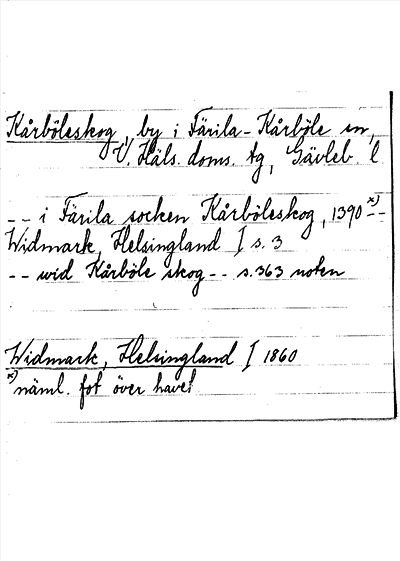 Kårböleskog, by i Färila-Kårböle sn,
V. Häls. doms. tg, Gävleb. l
-- i Färila socken Kårböleskog, 1390 x) --
Widmark, Helsingland I s. 3
-- wid Kårböle skog -- s. 363 noten
Widmark, Helsingland I 1860
x) näml. fot över havet